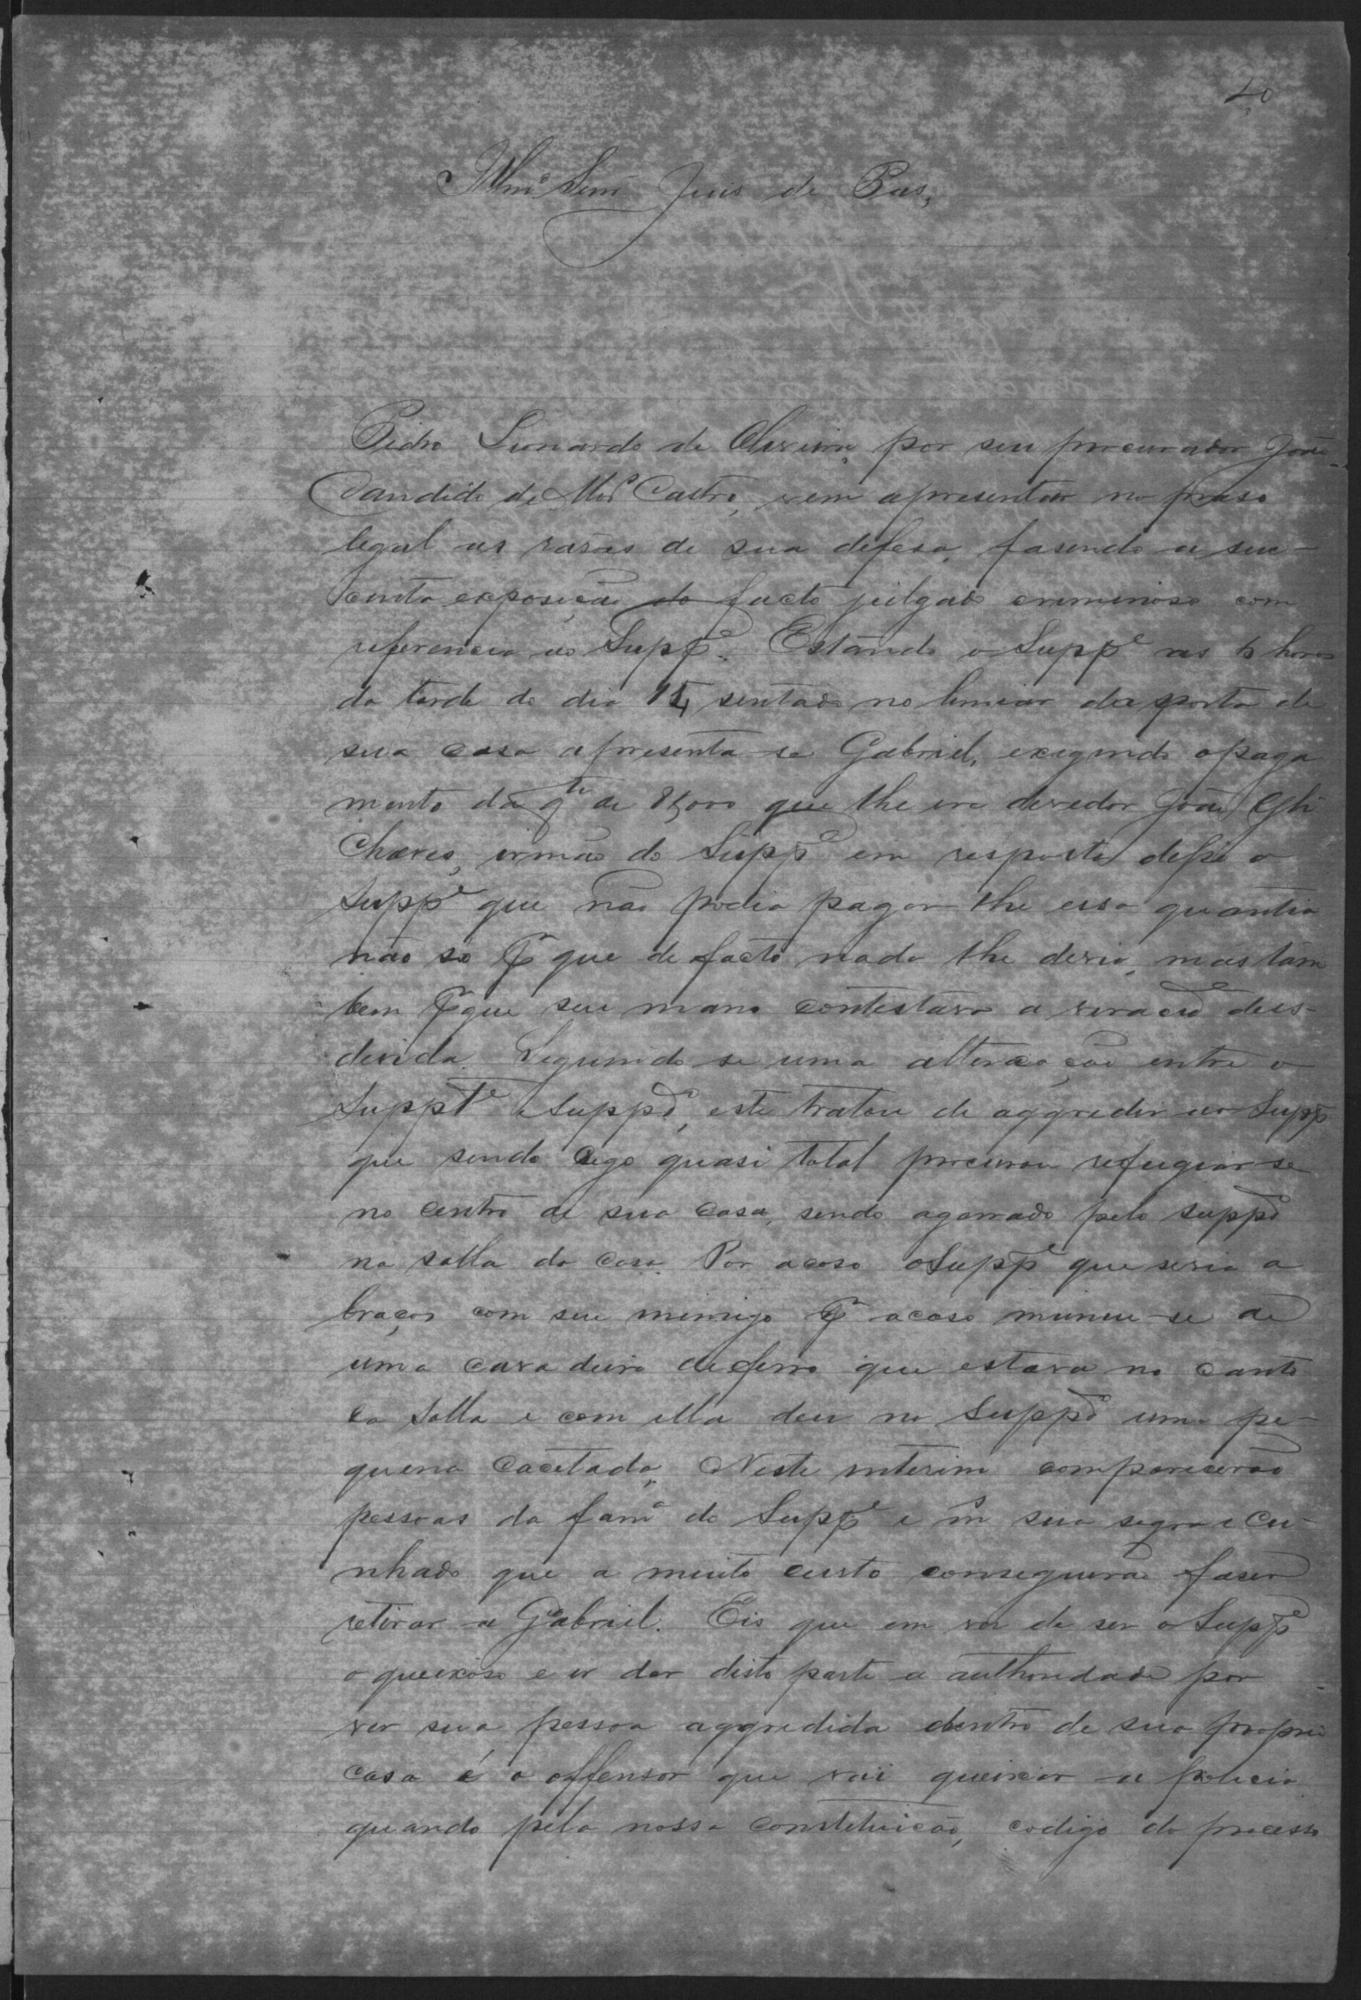 20
Illmo Senr Juis de Pas,
Pedro Leonardo de Oliveira, por seu procurador João
Candido de Mor.s Castro, vem apresentar no praso
legal as rasões de sua defesa, fasendo a suc-
cinta exposição do facto julgado criminoso com
referencia ao Suppe. Estando o Suppe as 6 horas
da tarde do dia 14 sentado no limiar da porta de
sua casa apresenta-se Gabriel, exegindo o paga
mento da qta de 85,000 que lhe era devedor João
Chaves, irmão do Suppe em resposta disse o
Suppe que não podia pagar-lhe essa quantia
não só pr que de facto nada lhe devia, mas tam
bem pr que seu mano contestava a veracide des-
divida. Seguindo se uma alteracação entre o
Suppte e Suppdo, este tratou de aggredir ao Suppe
que sendo cego quasi total procurou refugiar-se
no centro de sua casa, sendo agarrado pelo suppdo
na salla da casa. Por acaso o Suppe que se via a
braços com seu inimigo pr acaso muniu-se de
uma cavadeira de ferro que estava no canto
da Salla e com ella deu no Suppdo uma pe-
quena cacetada. Neste interim comparecerão
pessoas da fama do Suppe e m sua sogra e cu-
nhado que a muito custo conseguirão faser
retirar a Gabriel. Eis que em vez de ser o Suppe
o queixoso e ir dar disto parte a authoridade por
ver sua pessoa aggredida dentro de sua propria
casa é o offensor que vai queixar a policia
quando pela nossa constituição, codigo do processo